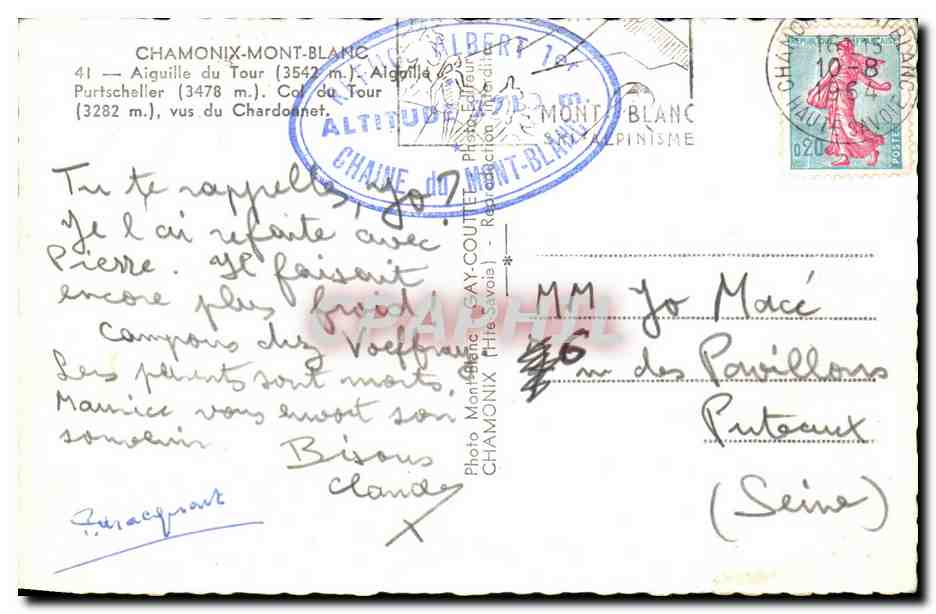 CHAMONIX-MONT-BLANC
41 — Aiguille du Tour (3542 m.). Aiguille
Purtscheller (3478 m.). Col du Tour
(3282 m.), vus du Chardonnet.
ALBERT 1er
ALTITUDE m.
CHAINE du MONT-BLANC
MONT-BLANC
ALPINISME
CHAMONIX-MONT-BLANC
16 H 15
10-8
1964
HAUTE-SAVOIE
0,20
POSTES
Tu te rappelles, Yo?
Je l'ai refaite avec
Pierre. Il faisait
encore plus froid!
Campons chez
Les parents sont morts
Maurice vous envoit son
souvenir
Bisous
Claude
Photo Mont-Blanc GAY-COUTTET Photo-Editeur
CHAMONIX (Hte Savoie) - Reproduction interdite
MM Yo Macé
6 r des Pavillons
Puteaux
(Seine)
CPAPHIL